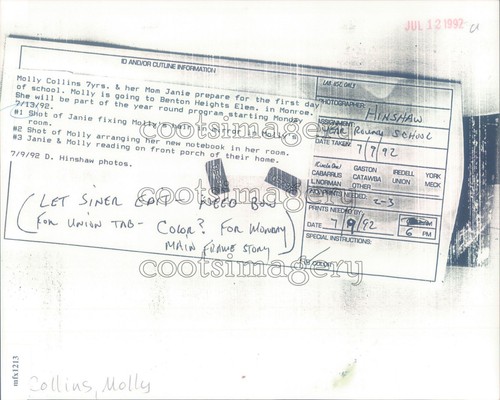 JUL 12 1992
ID AND/OR CUTLINE INFORMATION
Molly Collins 7yrs. & her Mom Janie prepare for the first day
of school. Molly is going to Benton Heights Elem. in Monroe.
She will be part of the year round program starting Monday
7/13/92.
#1 Shot of Janie fixing Molly's hair
room.
#2 Shot of Molly arranging her new notebook in her room.
#3 Janie & Molly reading on front porch of their home.
7/9/92 D. Hinshaw photos.
LET SINER EDIT - NEED B&W
FOR UNION TAB - COLOR? FOR MONDAY
MAIN FRAME STORY
LAB USE ONLY
PHOTOGRAPHER: HINSHAW
ASSIGNMENT:
YEAR ROUND SCHOOL
DATE TAKEN: 7/9/92
(Circle One) GASTON IREDELL YORK
CABARRUS CATAWBA UNION MECK
L.NORMAN OTHER
NO. PRINTS NEEDED: 2-3
PRINTS NEEDED BY:
DATE 7/9/92 6 PM
SPECIAL INSTRUCTIONS:
cootsimagery
cootsimagery
mfx1213
Collins, Molly